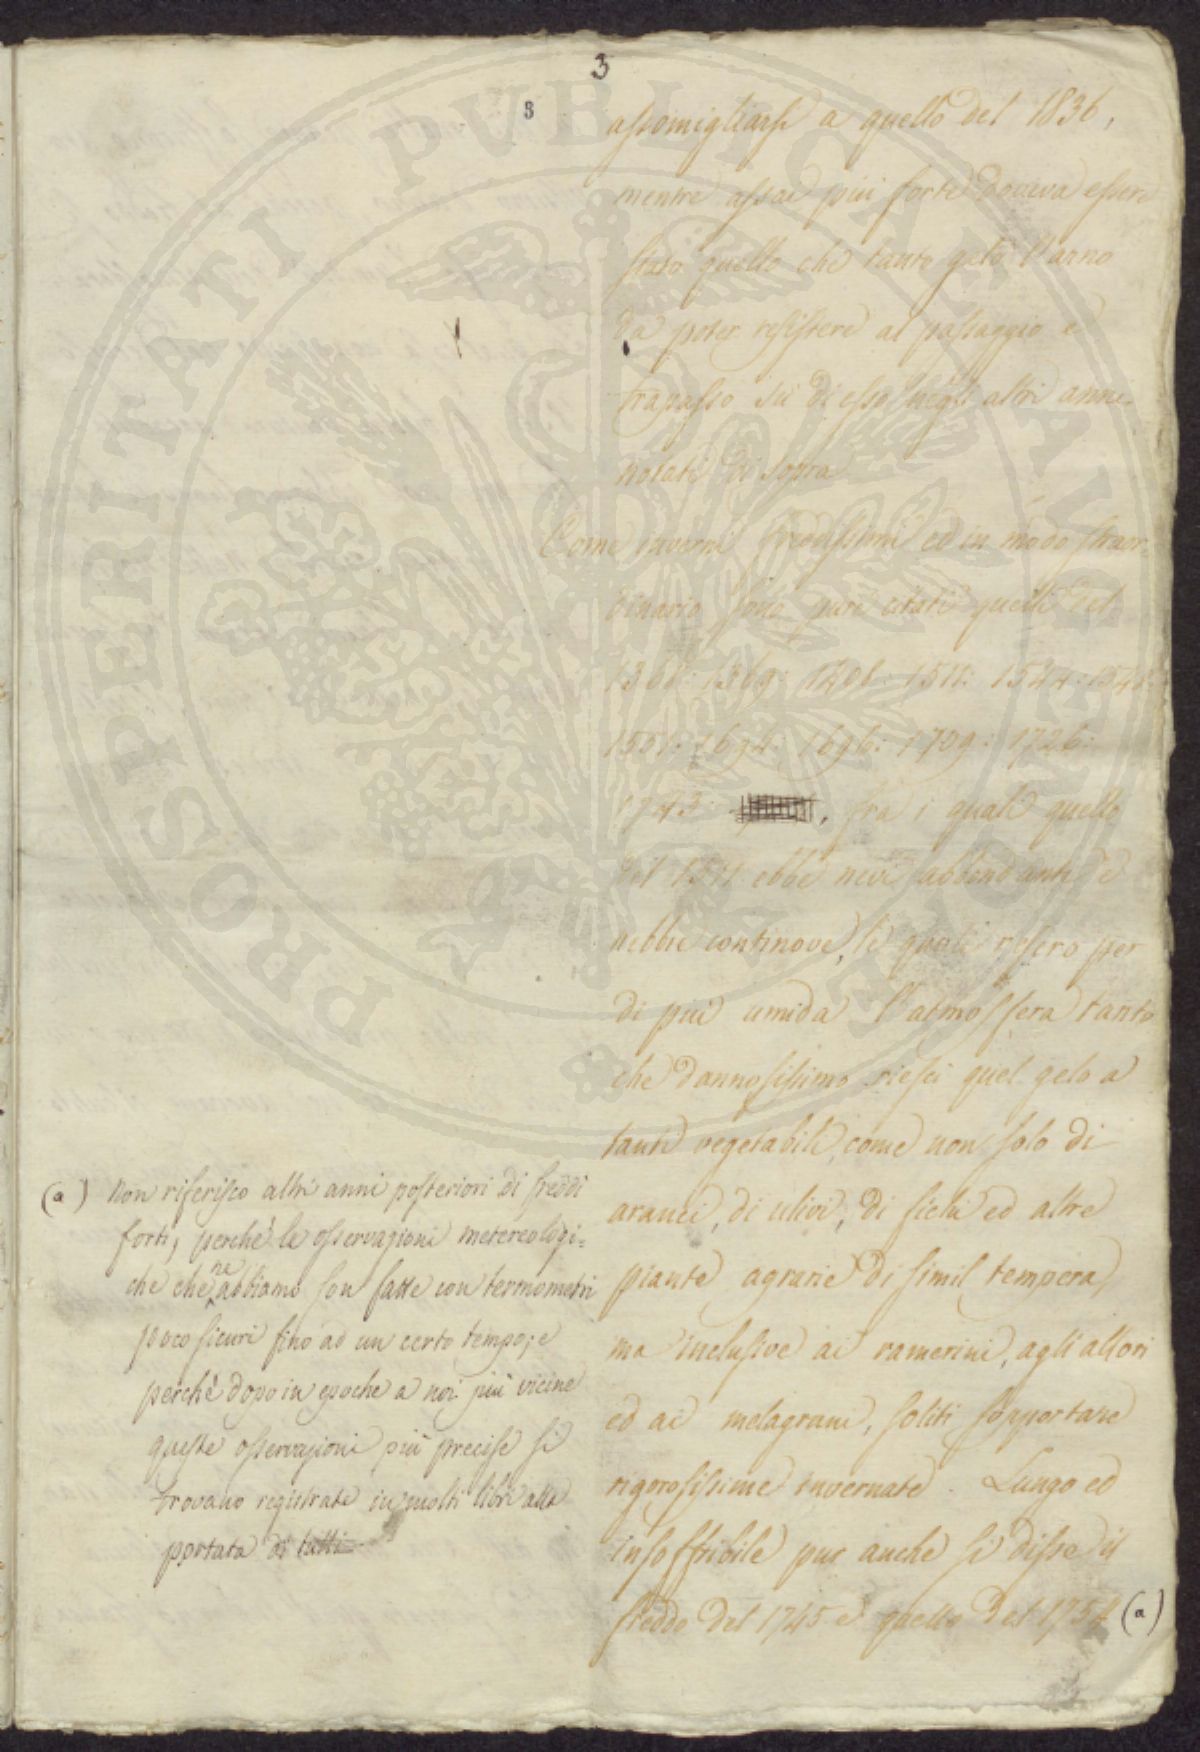 3
3
assomigliarsi a quello del 1836,
mentre assai più forte doveva essere
stato quello che tanto gelò l'arno
da poter resistere al passaggio e
trapasso su di esso negli altri anni
notati di sopra
Come inverni freddissimi ed in modo straor
dinario sono pure citati quelli del
1369: 1408: 1511: 1544:
1551: 1694: 1696: 1709: 1726:
fra i quali quello
del ebbe nevi abbondanti e
nebbie continove, le quali resero per
di più umida l'atmosfera tanto
che dannosissimo riescì quel gelo a
tanti vegetabili, come non solo di
aranci, di ulivi, di fichi ed altre
piante agrarie di simil tempera,
ma inclusive ai ramerini, agli allori
ed ai melagrani, soliti sopportare
rigorosissime invernate. Lungo ed
insoffribile pur anche si disse il
freddo del 1745 e quello del 1754 (a)
(a) Non riferisco altri anni posteriori di freddi
forti, perchè le osservazioni metereologi=
che che ne abbiamo son fatte con termometri
poco sicuri fino ad un certo tempo; e
perchè dopo in epoche a noi più vicine
queste osservazioni più precise si
trovano registrate in molti libri alla
portata di tutti
PROSPERITATI PUBLICAE AUGENDAE